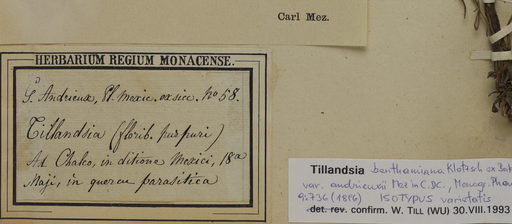 Carl Mez.
HERBARIUM REGIUM MONACENSE.
G. Andrieux, Pl. Mexic. exsicc. No 58.
Tillandsia (florib. purpuri)
Ad Chalco, in ditione Mexici, 18a
Maji, in quercu parasitica
Tillandsia benthamiana Klotzsch ex Bak
var. andrieuxii Mez in C.DC., Monogr. Phan
9:736 (1896) ISOTYPUS varietatis
det. rev. confirm. W. TILL (WU) 30.VIII.1993